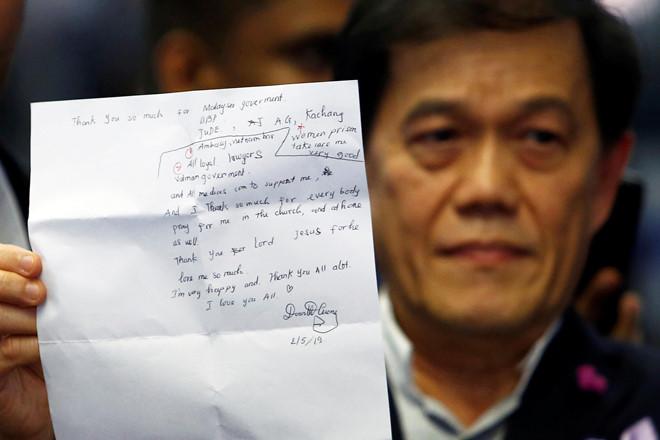 Thank You so much for Malaysia goverment.
JUDE, A.G, Kachang
Women prison
take care me
very good
① Ambassy, vietnam
② All loyal lawyers
goverment.
and All medias com to support me,
And I Thank so much for every body
pray for me in the church, and at home
as well.
Thank You Lord Jesus for he
love me so much.
I'm very happy and. Thank You All alot.
I love you All. ♡
2/5/19